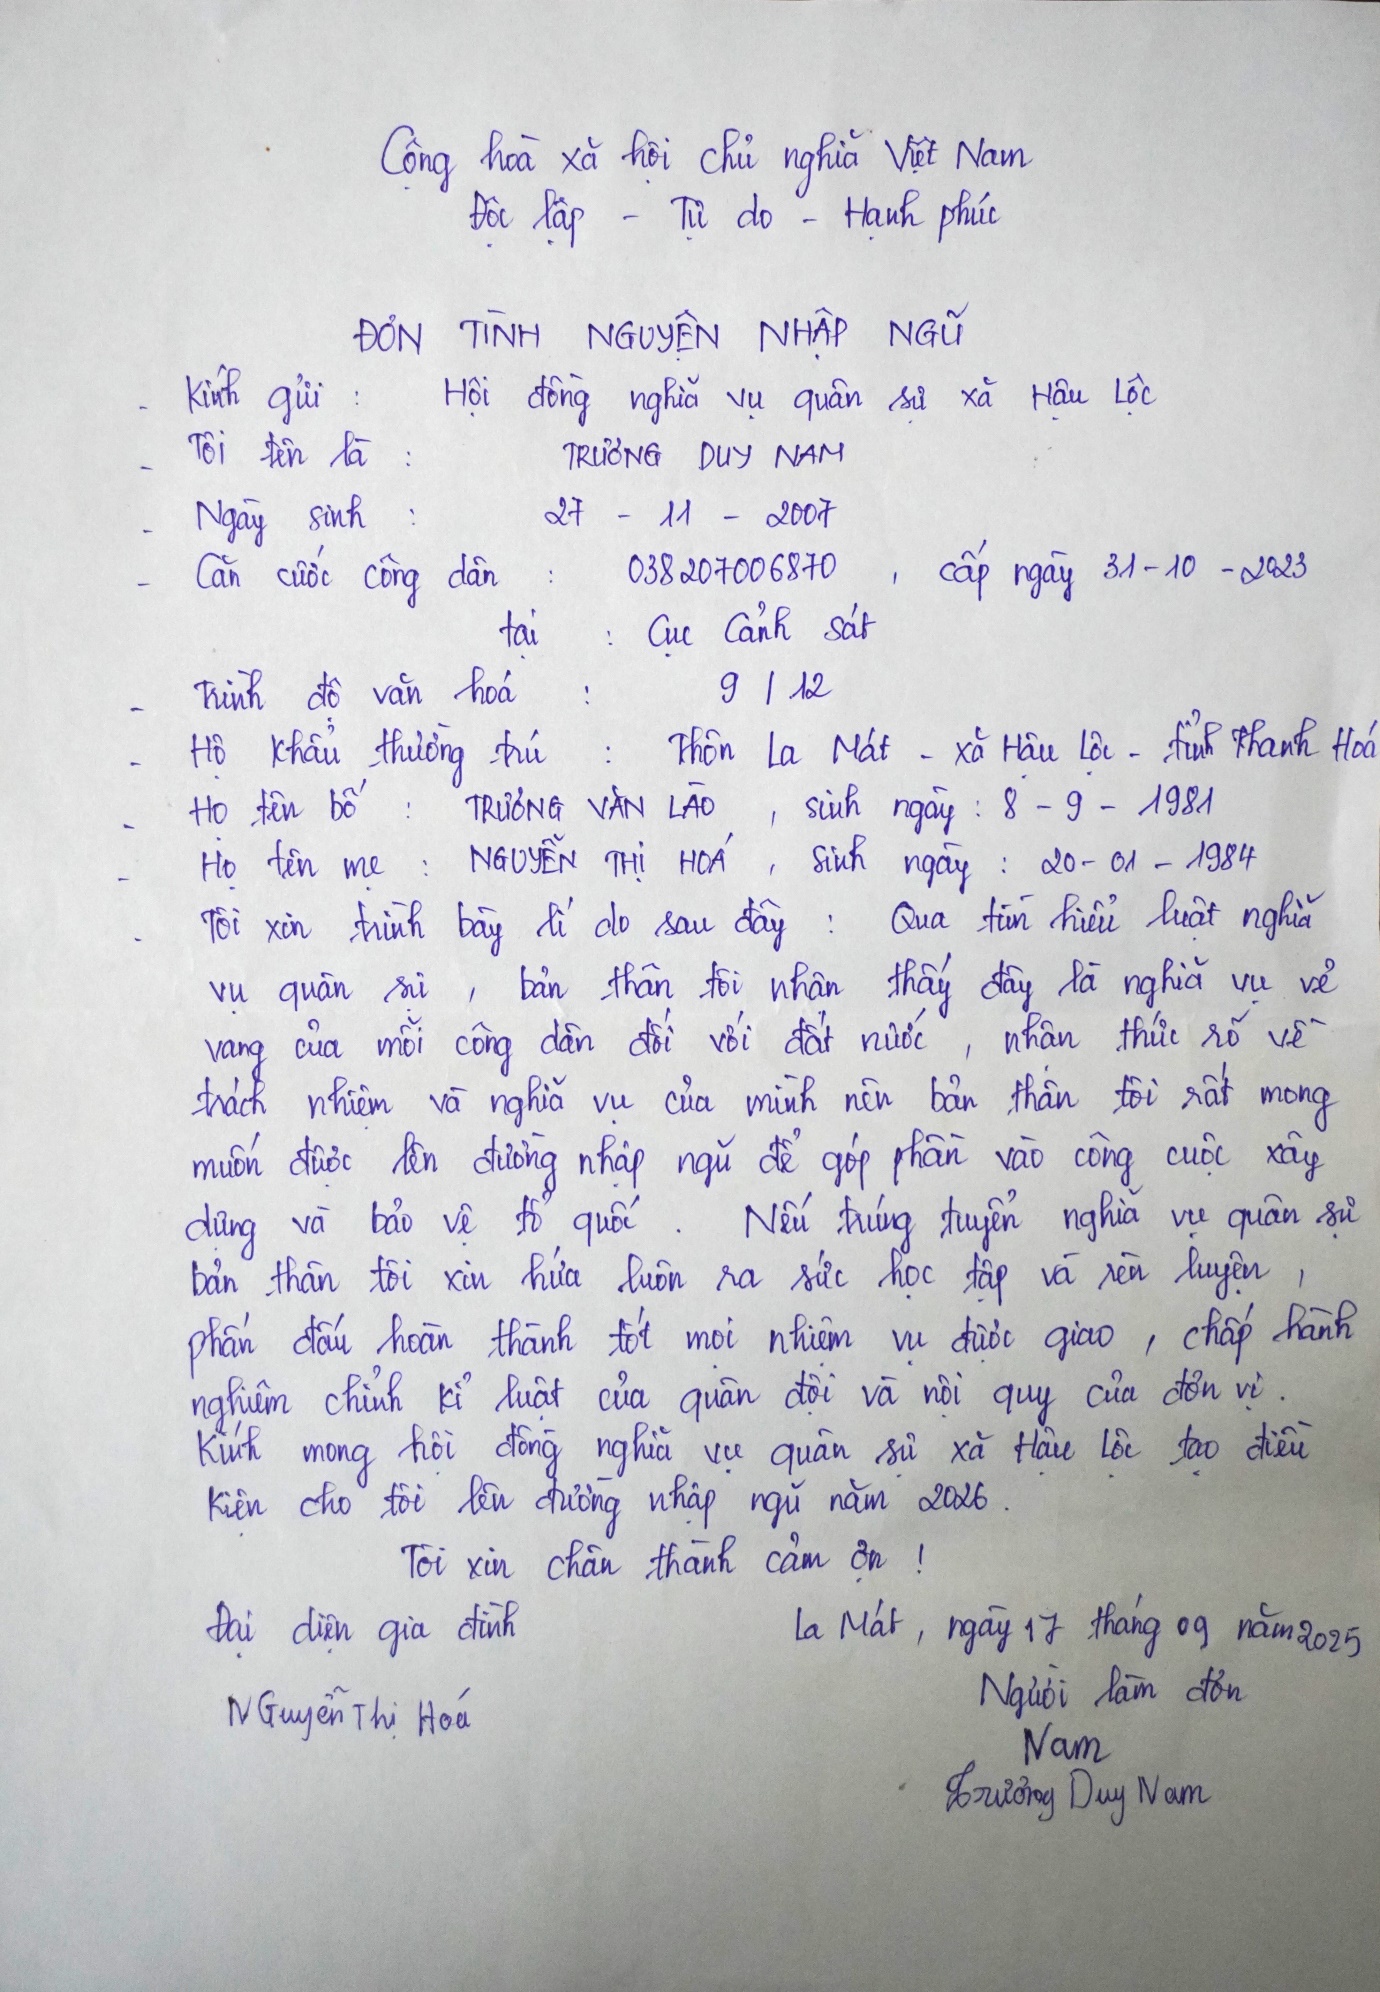 Cộng hoà xã hội chủ nghĩa Việt Nam
Độc lập - Tự do - Hạnh phúc
ĐƠN TÌNH NGUYỆN NHẬP NGŨ
- Kính gửi : Hội đồng nghĩa vụ quân sự xã Hậu Lộc
- Tôi tên là : TRƯƠNG DUY NAM
- Ngày sinh : 27 - 11 - 2007
- Căn cước công dân : 038207006870 , cấp ngày 31-10-2023
tại : Cục Cảnh sát
- Trình độ văn hoá : 9 / 12
- Hộ khẩu thường trú : Thôn La Mát - xã Hậu Lộc - tỉnh Thanh Hoá
- Họ tên bố : TRƯƠNG VĂN LÃO , sinh ngày : 8 - 9 - 1981
- Họ tên mẹ : NGUYỄN THỊ HOÁ , sinh ngày : 20-01-1984
- Tôi xin trình bày lí do sau đây : Qua tìm hiểu luật nghĩa
vụ quân sự , bản thân tôi nhận thấy đây là nghĩa vụ vẻ
vang của mỗi công dân đối với đất nước , nhận thức rõ về
trách nhiệm và nghĩa vụ của mình nên bản thân tôi rất mong
muốn được lên đường nhập ngũ để góp phần vào công cuộc xây
dựng và bảo vệ tổ quốc . Nếu trúng tuyển nghĩa vụ quân sự
bản thân tôi xin hứa luôn ra sức học tập và rèn luyện ,
phấn đấu hoàn thành tốt mọi nhiệm vụ được giao , chấp hành
nghiêm chỉnh kỉ luật của quân đội và nội quy của đơn vị .
Kính mong hội đồng nghĩa vụ quân sự xã Hậu Lộc tạo điều
kiện cho tôi lên đường nhập ngũ năm 2026 .
Tôi xin chân thành cảm ơn !
Đại diện gia đình
La Mát , ngày 17 tháng 09 năm 2025
Người làm đơn
Nguyễn Thị Hoá
Nam
Trương Duy Nam